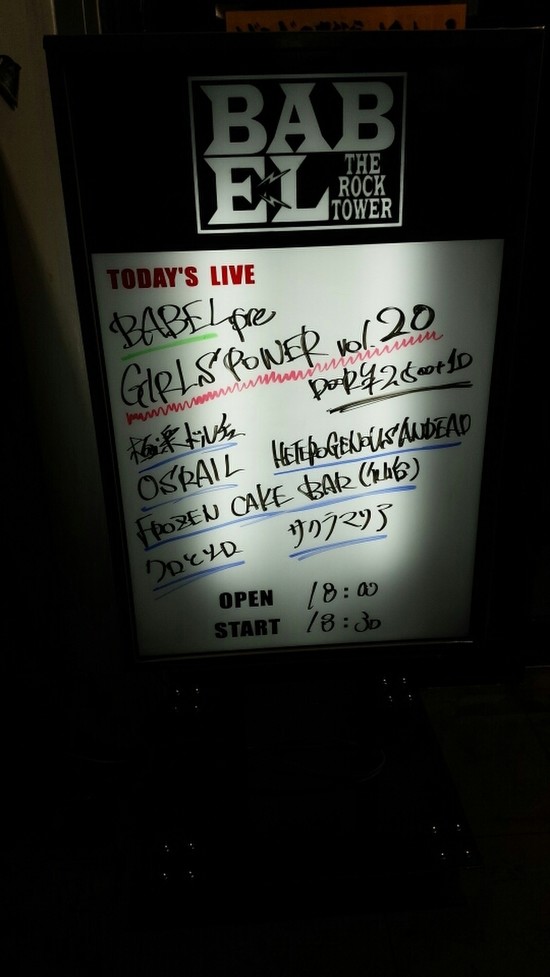 BABEL
THE ROCK TOWER
TODAY'S LIVE
BABEL pre
GIRLS' POWER vol.20
DOOR ¥2500+1D
極楽ドルチェ
HETEROGENOUS ANDEAD
OSRAIL
FROZEN CAKE BAR (仙台)
クロとシロ サクラマツア
OPEN 18:00
START 18:30